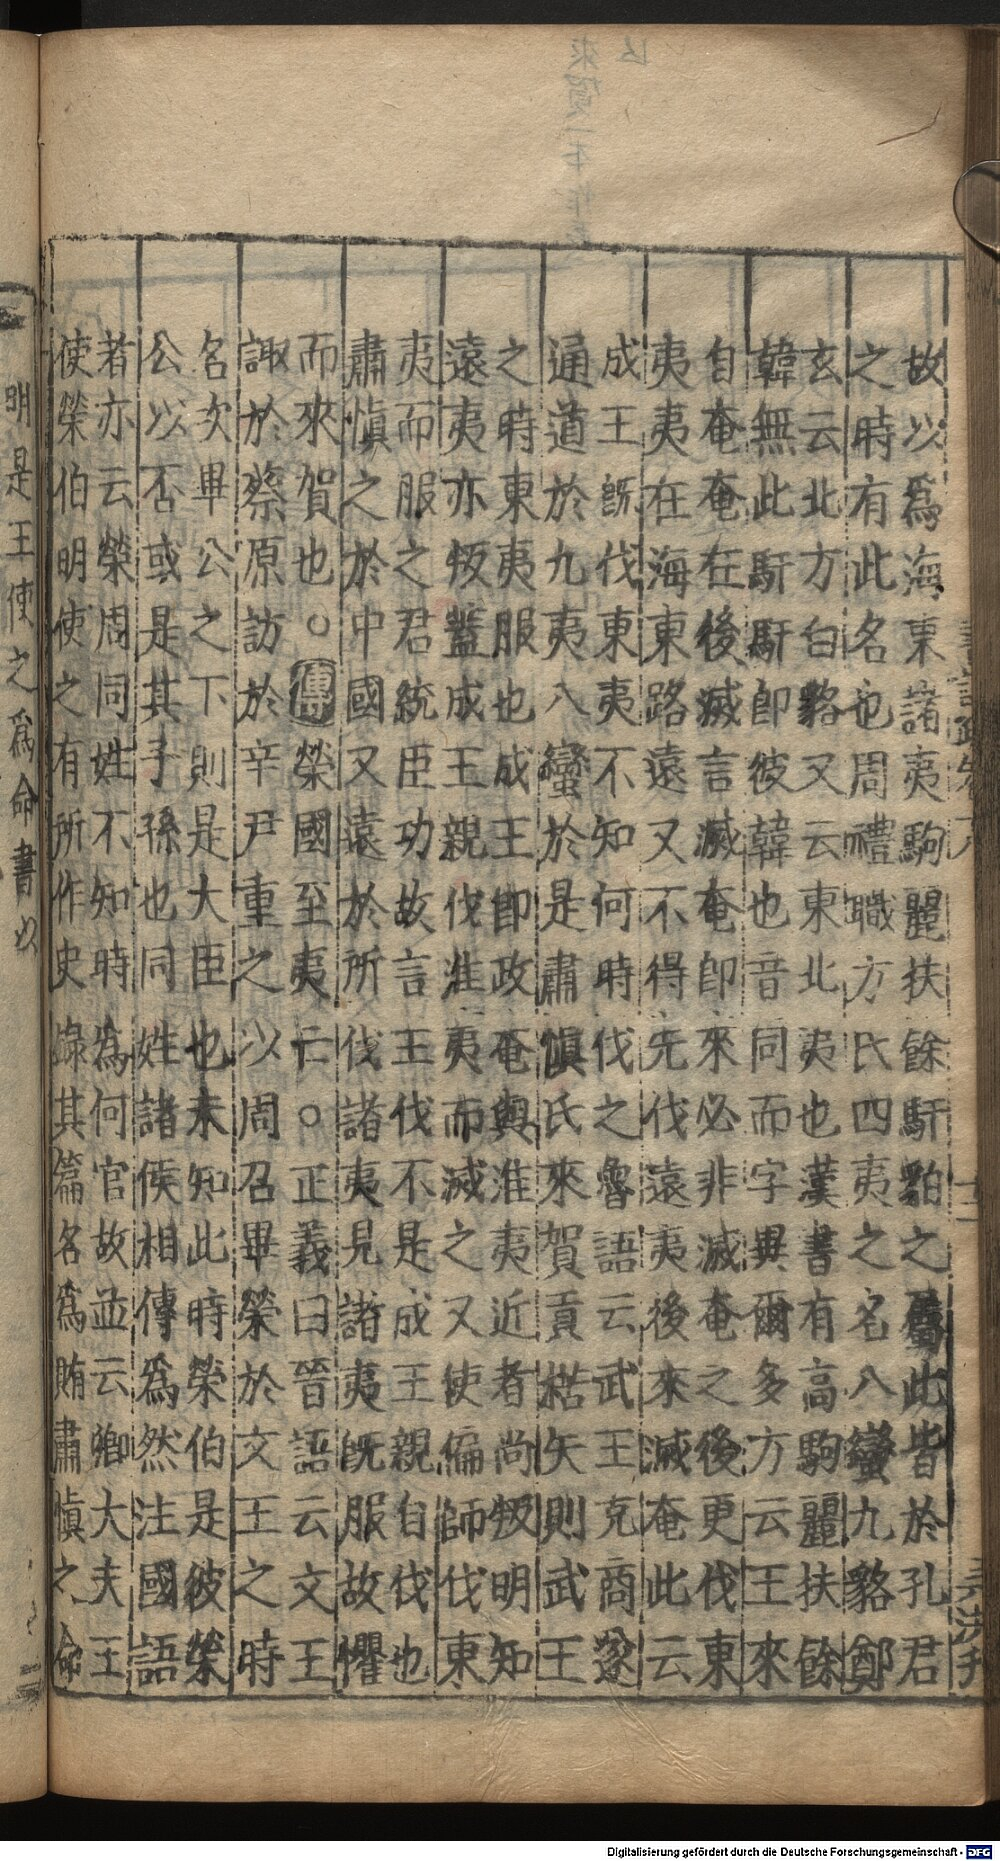 故以為海東諸夷駒麗扶餘馯貊之屬此皆於孔君
之時有此名也周禮職方氏四夷之名八蠻九貉鄭
玄云北方白貉又云東北夷也漢書有高駒麗扶餘
韓無此馯馯卽彼韓也音同而字異爾多方云王來
自奄奄在後滅言滅奄卽來必非滅奄之後更伐東
夷夷在海東路遠又不得先伐遠夷後來滅奄此云
成王旣伐東夷不知何時伐之魯語云武王克商遂
通道於九夷八蠻於是肅慎氏來賀貢楛矢則武王
之時東夷服也成王卽政奄與淮夷近者尚叛明知
遠夷亦叛蓋成王親伐淮夷而滅之又使偏師伐東
夷而服之君統臣功故言王伐不是成王親自伐也
肅慎之於中國又遠於所伐諸夷見諸夷旣服故懼
而來賀也○傳榮國至夷亡○正義曰晉語云文王
諏於蔡原訪於辛尹重之以周召畢榮於文王之時
名次畢公之下則是大臣也未知此時榮伯是彼榮
公以否或是其子孫也同姓諸侯相傳為然注國語
者亦云榮周同姓不知時為何官故並云卿大夫王
使榮伯明使之有所作史錄其篇名爲賄肅慎之命
明是王使之爲命書以
Digitalisierung gefördert durch die Deutsche Forschungsgemeinschaft - DFG